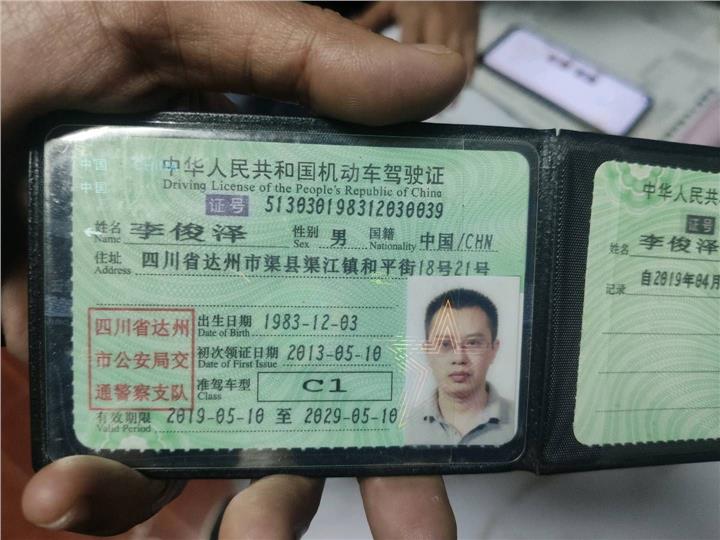 中国 CHINA
中国
中华人民共和国机动车驾驶证
Driving License of the People's Republic of China
证号 513030198312030039
姓名 李俊泽 性别 男 国籍 中国/CHN
Name Sex Nationality
住址 四川省达州市渠县渠江镇和平街18号21号
Address
四川省达州
市公安局交
通警察支队
出生日期 1983-12-03
Date of Birth
初次领证日期 2013-05-10
Date of First Issue
准驾车型 C1
Class
有效期限 2019-05-10 至 2029-05-10
Valid Period
中华人民共
证号
姓名 李俊泽
记录 自2019年04月